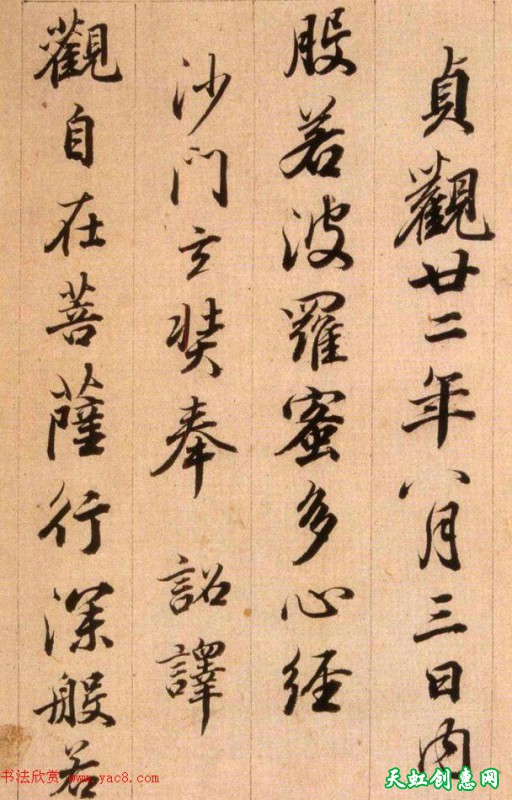 貞觀廿二年八月三日內
般若波羅蜜多心經
沙門玄奘奉 詔譯
觀自在菩薩行深般若
书法欣赏 www.yac8.com
天虹创惠网